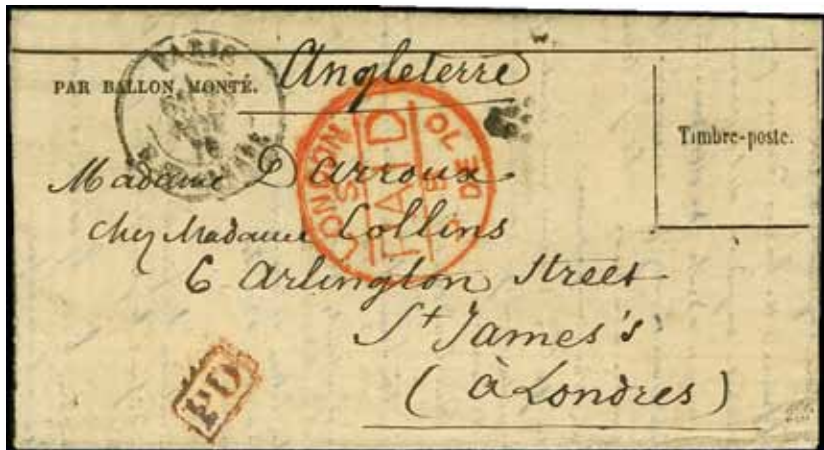 PARIS
PAR BALLON MONTÉ.
Angleterre
Timbre-poste.
LONDON
PAID
DE
70
Madame Darroux
chez Madame Collins
6 Arlington Street
St James's
(à Londres)
PD